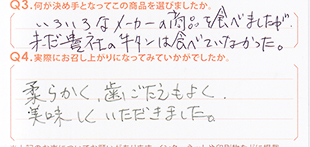 Q3.何が決め手となってこの商品を選びましたか。
いろいろなメーカーの商品を食べましたが
まだ貴社の牛タンは食べていなかった。
Q4.実際にお召し上がりになってみていかがでしたか。
柔らかく、歯ごたえもよく、
美味しくいただきました。